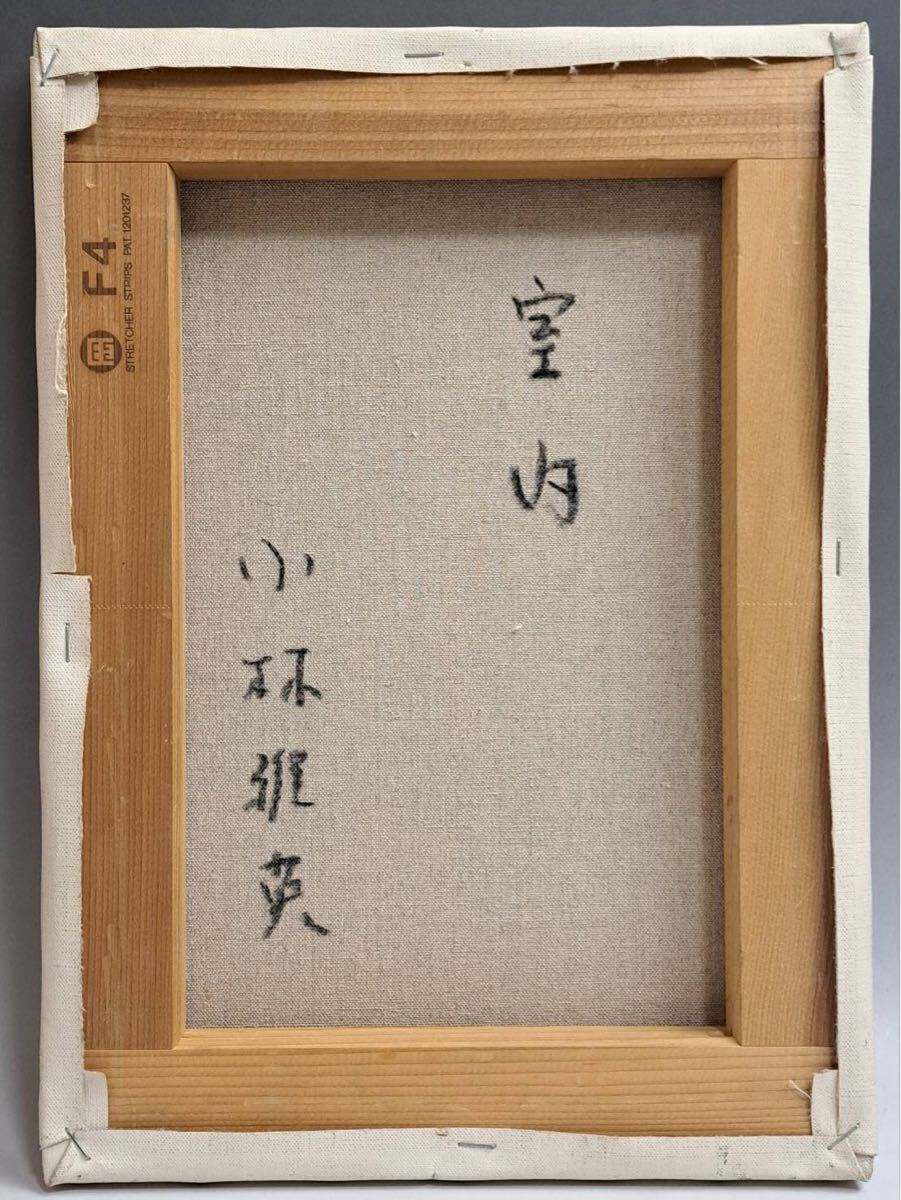 室内
小林雅英
F4
STRETCHER STRIPS PAT 1201237